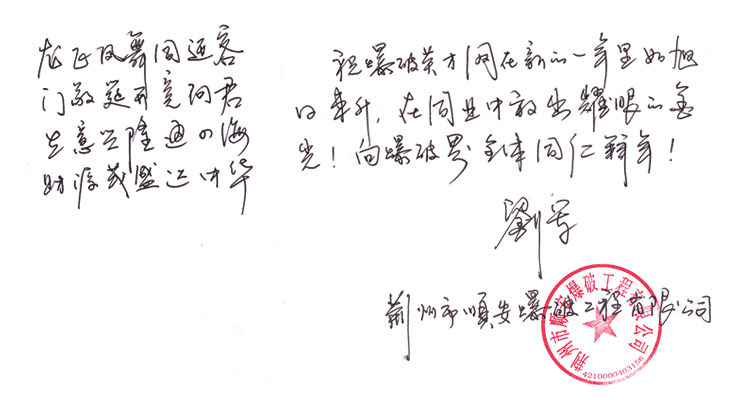 龙飞凤舞同迎客
门敞延开竞问君
生意兴隆通四海
财源茂盛达中华
祝爆破英才网在新的一年里如旭
日东升,在同业中放出耀眼的金
光!向爆破界全体同仁拜年!
劉军
荆州市順安爆破工程有限公司
荆州市顺安爆破工程有限公司
4210000403156